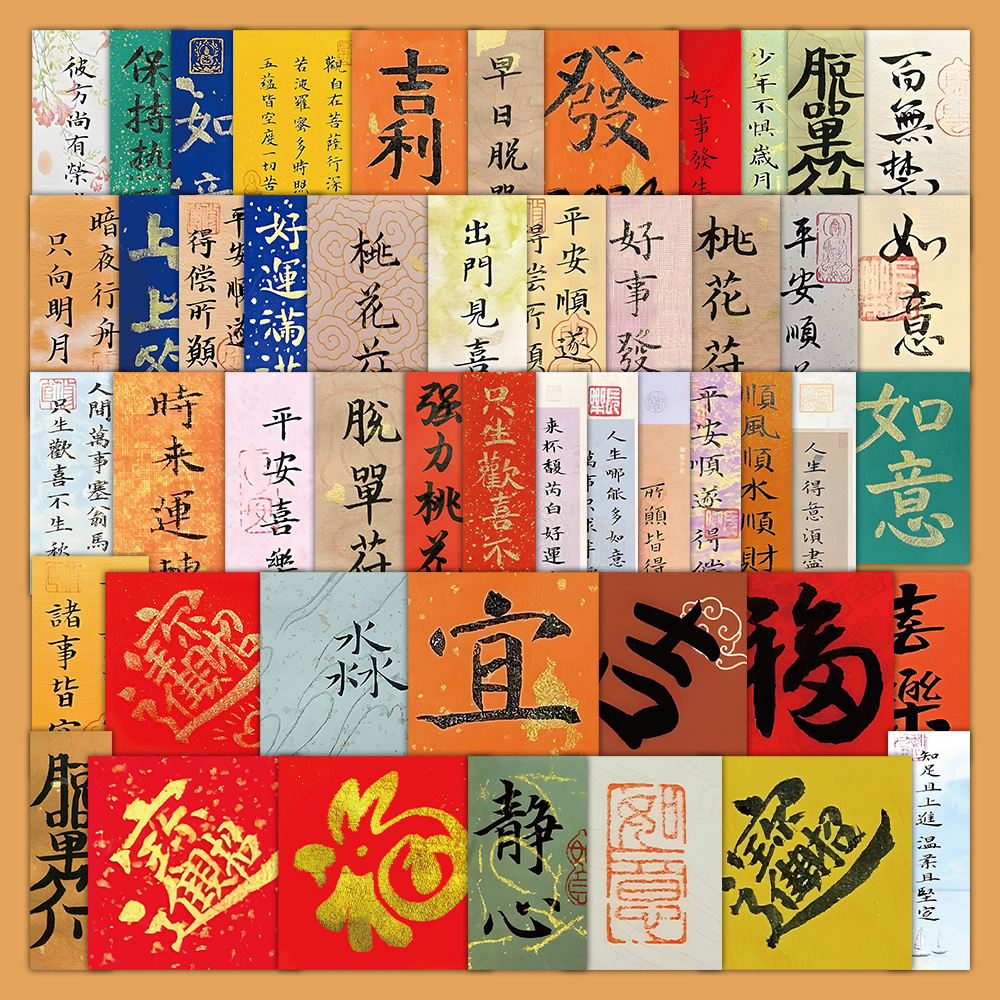 彼方尚有榮
保持热
如
觀自在菩薩行深
若波羅蜜多時照
五蕴皆空度一切苦
吉利
早日脫單
發
好事發生
少年不惧歲月
脫單符
百無禁
暗夜行舟
只向明月
上上签
平安順遂
得偿所願
好運滿滿
桃花符
出門見喜
平安順遂
得偿所願
好事發
桃花符
平安順
如意
人間萬事塞翁馬
只生歡喜不生秋
時来運轉
平安喜樂
脫單符
强力桃花
只生歡喜不
来杯馥芮白好運
人生哪能多如意
萬事只求半
所願皆得
平安順遂得偿
順風順水順財
人生得意須盡
如意
諸事皆宜
招財進寶
水
水水
宜
福
喜樂
脫單符
招財進寶
福
靜心
如意
招財進寶
知足且上進溫柔且堅定